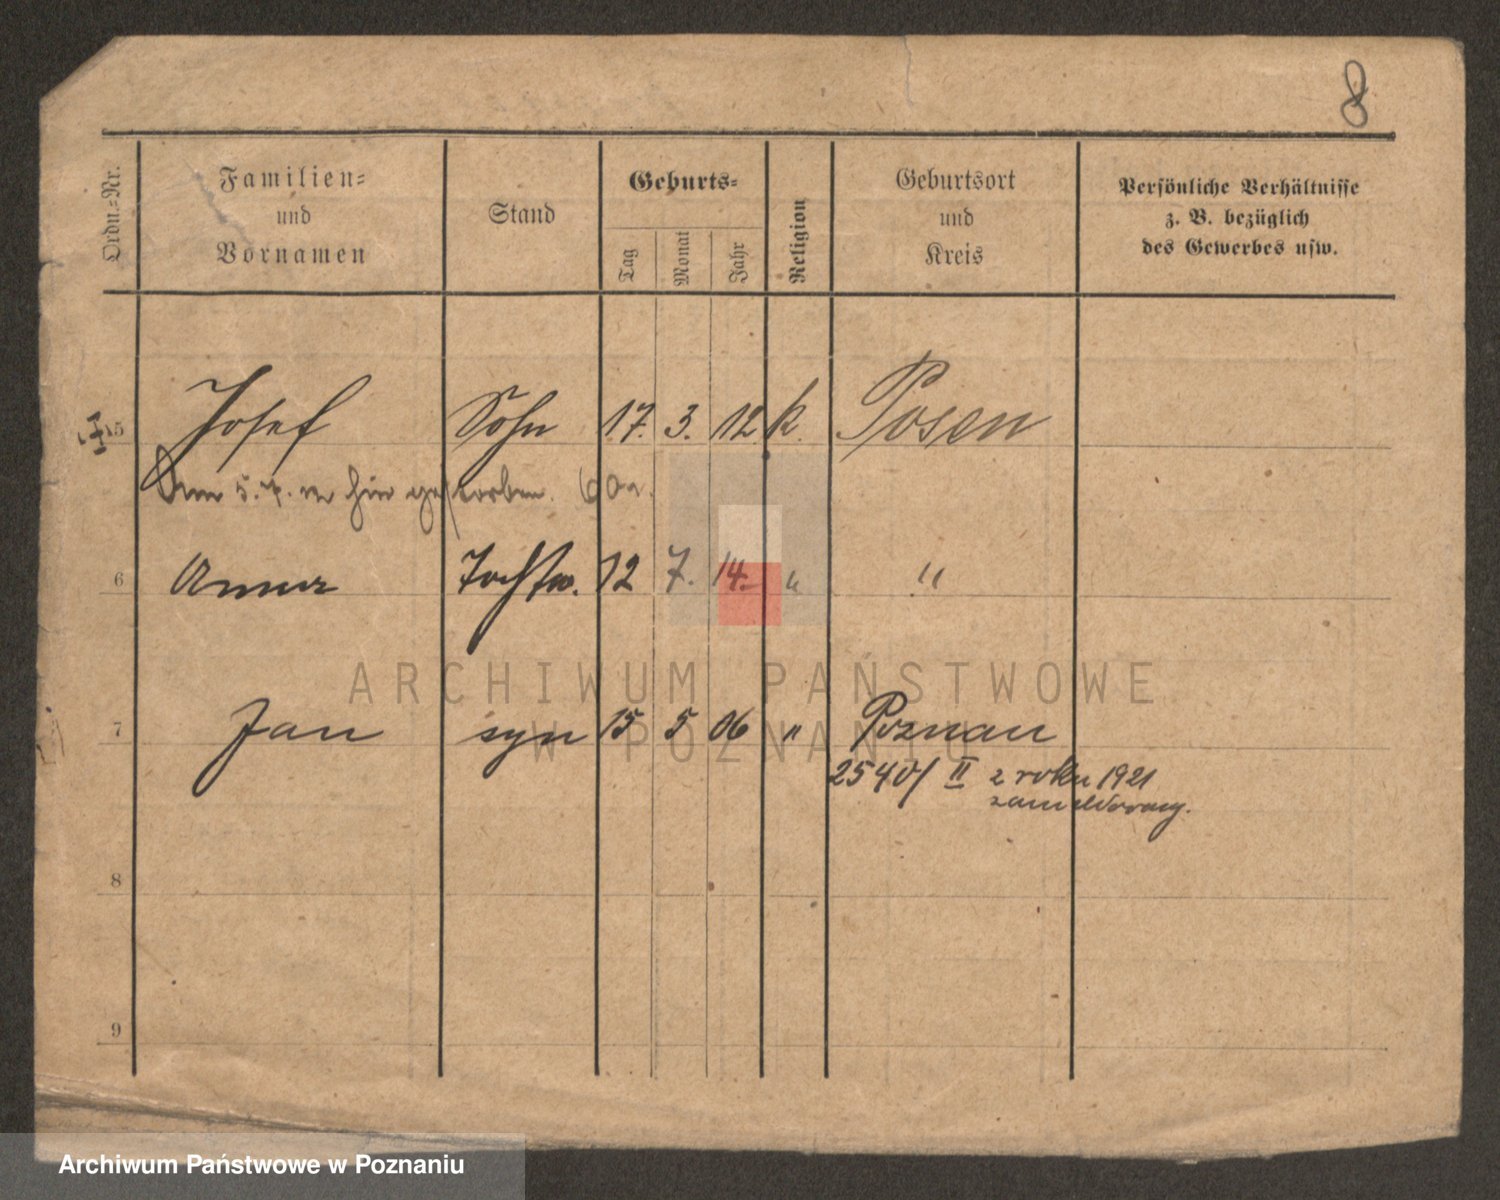 8
Ordn.-Nr.
Familien-
und
Vornamen
Stand
Geburts-
Tag
Monat
Jahr
Religion
Geburtsort
und
Kreis
Persönliche Verhältnisse
z. B. bezüglich
des Gewerbes usw.
5 Josef Sohn 17. 3. 12 k. Posen
Am 5. 7. hier gestorben.
6 Anna Tochter. 12 7. 14. " "
ARCHIWUM PAŃSTWOWE
W POZNANIU
7 Jan syn 15 5 06 " Poznań
2540/II z roku 1921
zameldowany.
8
9
Archiwum Państwowe w Poznaniu